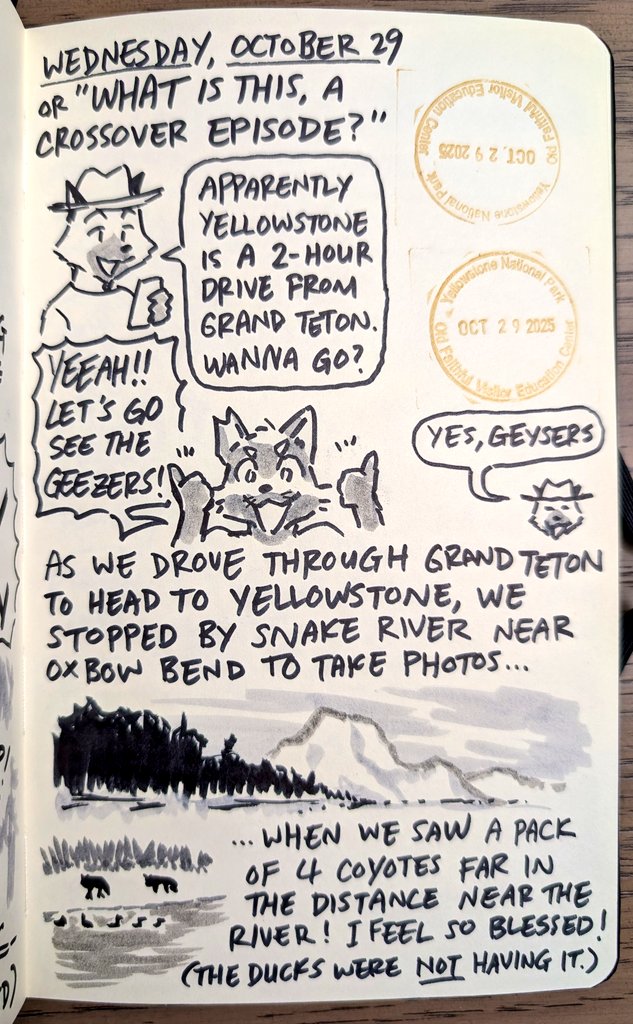 WEDNESDAY, OCTOBER 29
OR "WHAT IS THIS, A
CROSSOVER EPISODE?"
Old Faithful Visitor Education Center
OCT. 29 2025
Yellowstone National Park
APPARENTLY
YELLOWSTONE
IS A 2-HOUR
DRIVE FROM
GRAND TETON.
WANNA GO?
Yellowstone National Park
OCT 29 2025
Old Faithful Visitor Education Center
YEEAH!!
LET'S GO
SEE THE
GEEZERS!
YES, GEYSERS
AS WE DROVE THROUGH GRAND TETON
TO HEAD TO YELLOWSTONE, WE
STOPPED BY SNAKE RIVER NEAR
OXBOW BEND TO TAKE PHOTOS...
...WHEN WE SAW A PACK
OF 4 COYOTES FAR IN
THE DISTANCE NEAR THE
RIVER! I FEEL SO BLESSED!
(THE DUCKS WERE NOT HAVING IT.)